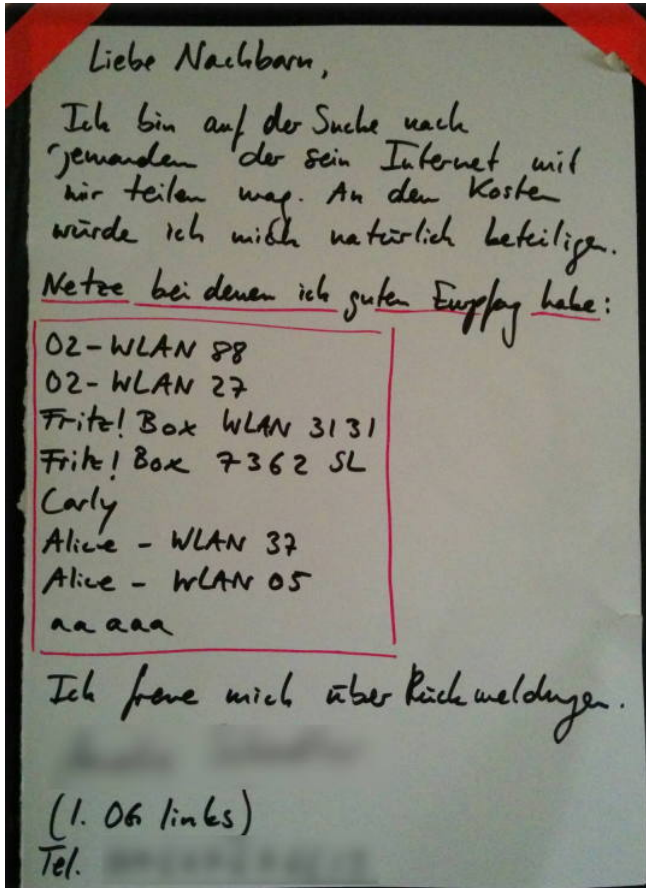 Liebe Nachbarn,
Ich bin auf der Suche nach
jemanden der sein Internet mit
mir teilen mag. An den Kosten
würde ich mich natürlich beteiligen.
Netze bei denen ich guten Empfag habe:
O2-WLAN 88
O2-WLAN 27
Fritz! Box WLAN 3131
Fritz! Box 7362 SL
Carly
Alice - WLAN 37
Alice - WLAN 05
aa aaa
Ich freue mich über Rückmeldungen.
(1. OG links)
Tel.